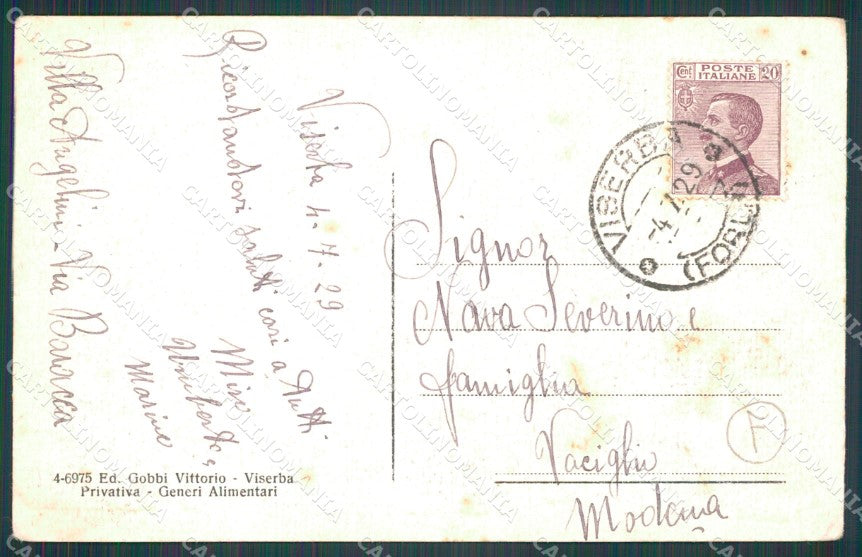 Viserba 4-7-29
Ricordandovi saluti cari a tutti
Mire
Umberto e
Marine
Villa Angelini - Via Baracca
4-6975 Ed. Gobbi Vittorio - Viserba
Privativa - Generi Alimentari
Cent POSTE ITALIANE 20
VISERBA (FORLI)
-4.7.29
Signor
Nava Severino e
famiglia
Vaciglio
Modena
F
CARTOLINOMANIA